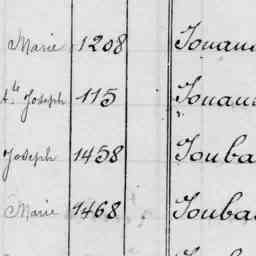 Marie 1208 Jouan
Ate Joseph 115 Jouan
Joseph 1458 Jouba
Marie 1468 Jouba